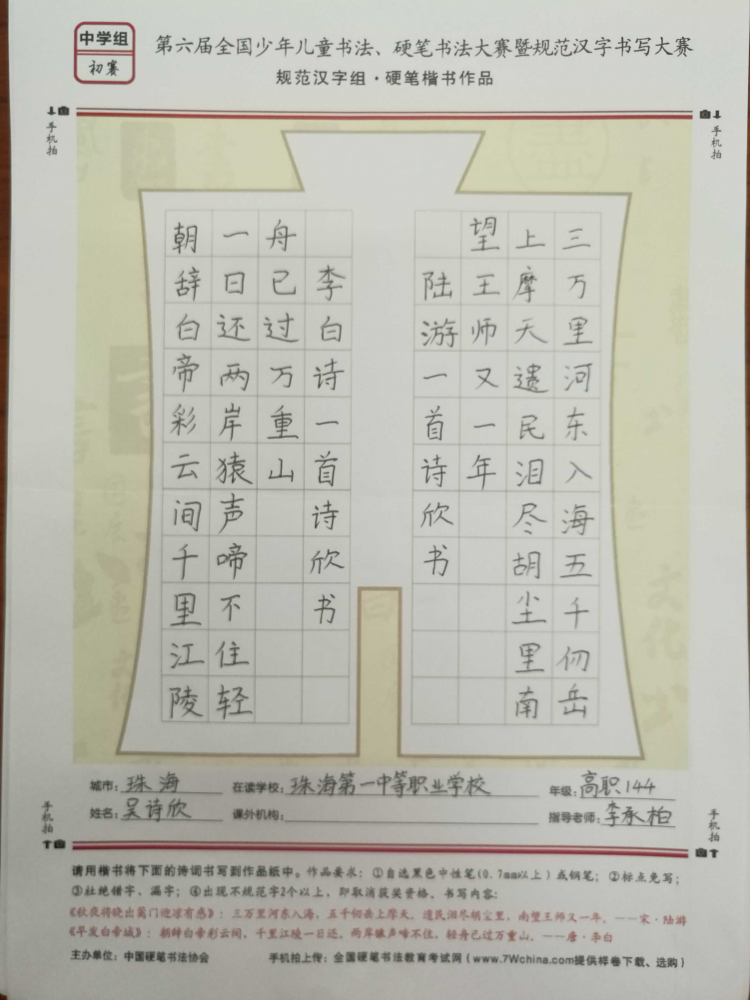 中学组
初赛
第六届全国少年儿童书法、硬笔书法大赛暨规范汉字书写大赛
规范汉字组·硬笔楷书作品
手机拍
手机拍
三万里河东入海五千仞岳
上摩天遗民泪尽胡尘里南
望王师又一年
陆游一首诗欣书
朝辞白帝彩云间千里江陵
一日还两岸猿声啼不住轻
舟已过万重山
李白诗一首诗欣书
城市：珠海 在读学校：珠海第一中等职业学校 年级：高职144
姓名：吴诗欣 课外机构： 指导老师：李承柏
手机拍
手机拍
请用楷书将下面的诗词书写到作品纸中。作品要求：①自选黑色中性笔(0.7mm以上)或钢笔；②标点免写；
③杜绝错字、漏字；④出现不规范字2个以上，即取消获奖资格。书写内容：
《秋夜将晓出篱门迎凉有感》：三万里河东入海，五千仞岳上摩天。遗民泪尽胡尘里，南望王师又一年。——宋·陆游
《早发白帝城》：朝辞白帝彩云间，千里江陵一日还。两岸猿声啼不住，轻舟已过万重山。——唐·李白
主办单位：中国硬笔书法协会 手机拍上传：全国硬笔书法教育考试网（www.7Wchina.com提供样卷下载、选购）